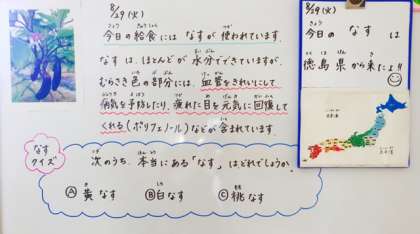 8/29(火)
今日の給食には なすが 使われています。
なす は、ほとんどが 水分でできていますが、
むらさき 色の 部分には、血管をきれいにして
病気を予防したり、疲れた 目を元気に 回復して
くれる(ポリフェノール)などが 含まれています。
なす
クイズ
次のうち、本当にある「なす」はどれでしょうか。
Ⓐ 黄 なす
Ⓑ 白 なす
Ⓒ 桃 なす
8/29(火)
今日の なす は
徳島県から来たよ!!